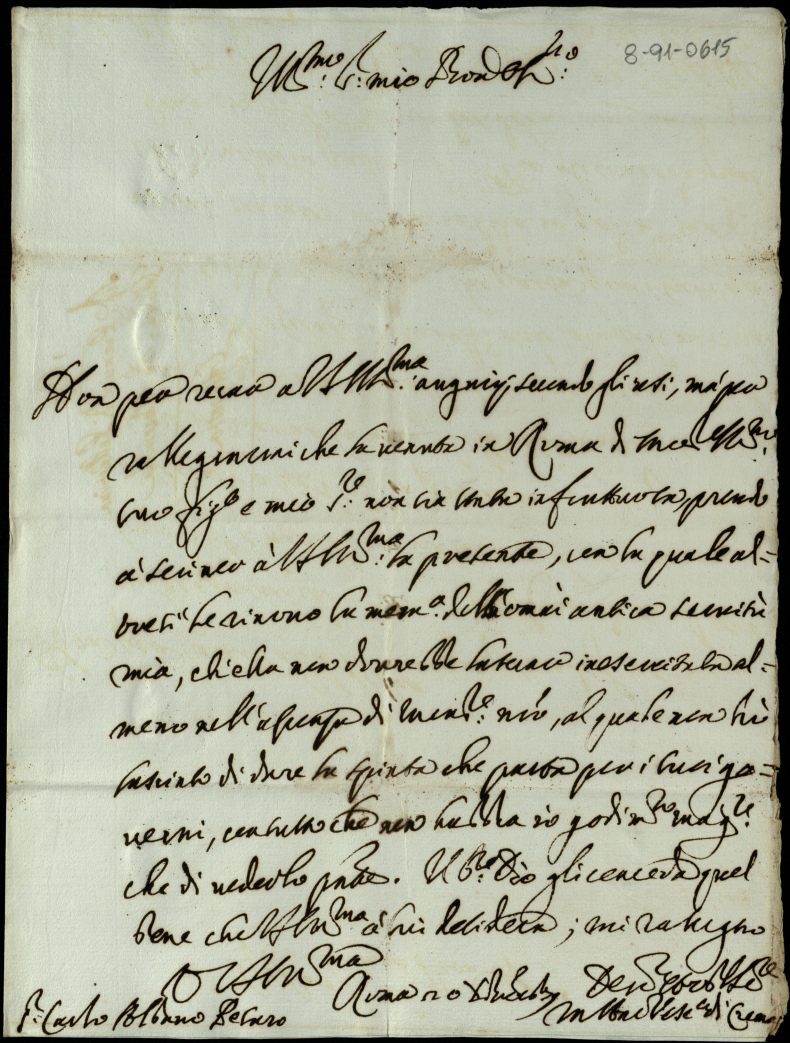 Ill.mo S.r mio Pron Oss.mo
8-91-0615
Non per recar a V.S. Ill.ma augurij secondo gli usi, mà per
rallegrarmi che la venuta in Roma di Ill.mo
suo fig.o e mio S.re non sia stata infruttuosa, prendo
à scriver à V.S. Ill.ma la presente, con la quale al=
tresì le rinovo la mem.a dell'omai antica servitù
mia, ch'ella non dovrebbe lasciar inesercitata al=
meno nell'assenza di nro, al quale non hò
lasciato di dare la spinta che porta per i suoi go=
verni, con tutto che non habbia io godim.to mag.re
che di vederlo pnte. Il Sig.re Dio gli conceda quel
bene che V.S. Ill.ma à lui desidera; mi rassegno
D V.S. Ill.ma
Roma 20 Xbre
S.r Carlo Albano Pesaro